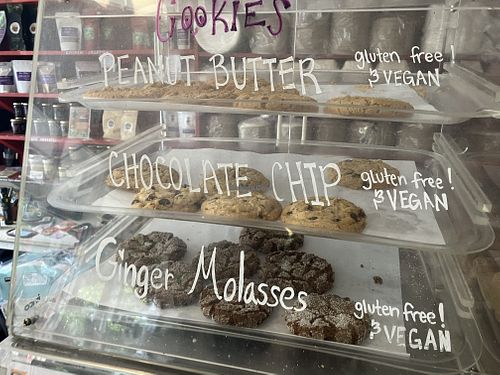 COOKIES
PEANUT BUTTER
gluten free!
& VEGAN
CHOCOLATE CHIP
gluten free!
& VEGAN
Ginger Molasses
gluten free!
& VEGAN